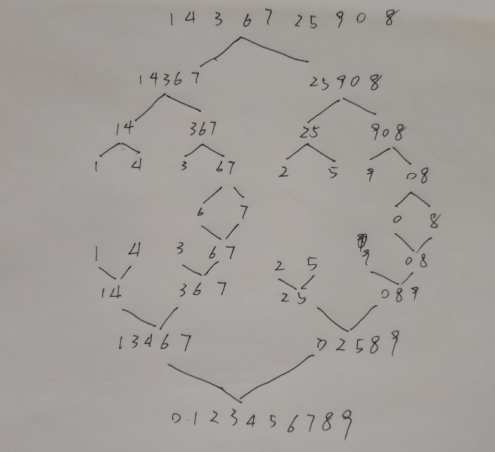 1 4 3 6 7 2 5 9 0 8
1 4 3 6 7 2 5 9 0 8
1 4 3 6 7 2 5 9 0 8
1 4 3 6 7 2 5 9 0 8
6 7 0 8
1 4 3 6 7 2 5 9 0 8
1 4 3 6 7 2 5 0 8 9
1 3 4 6 7 0 2 5 8 9
0 1 2 3 4 5 6 7 8 9